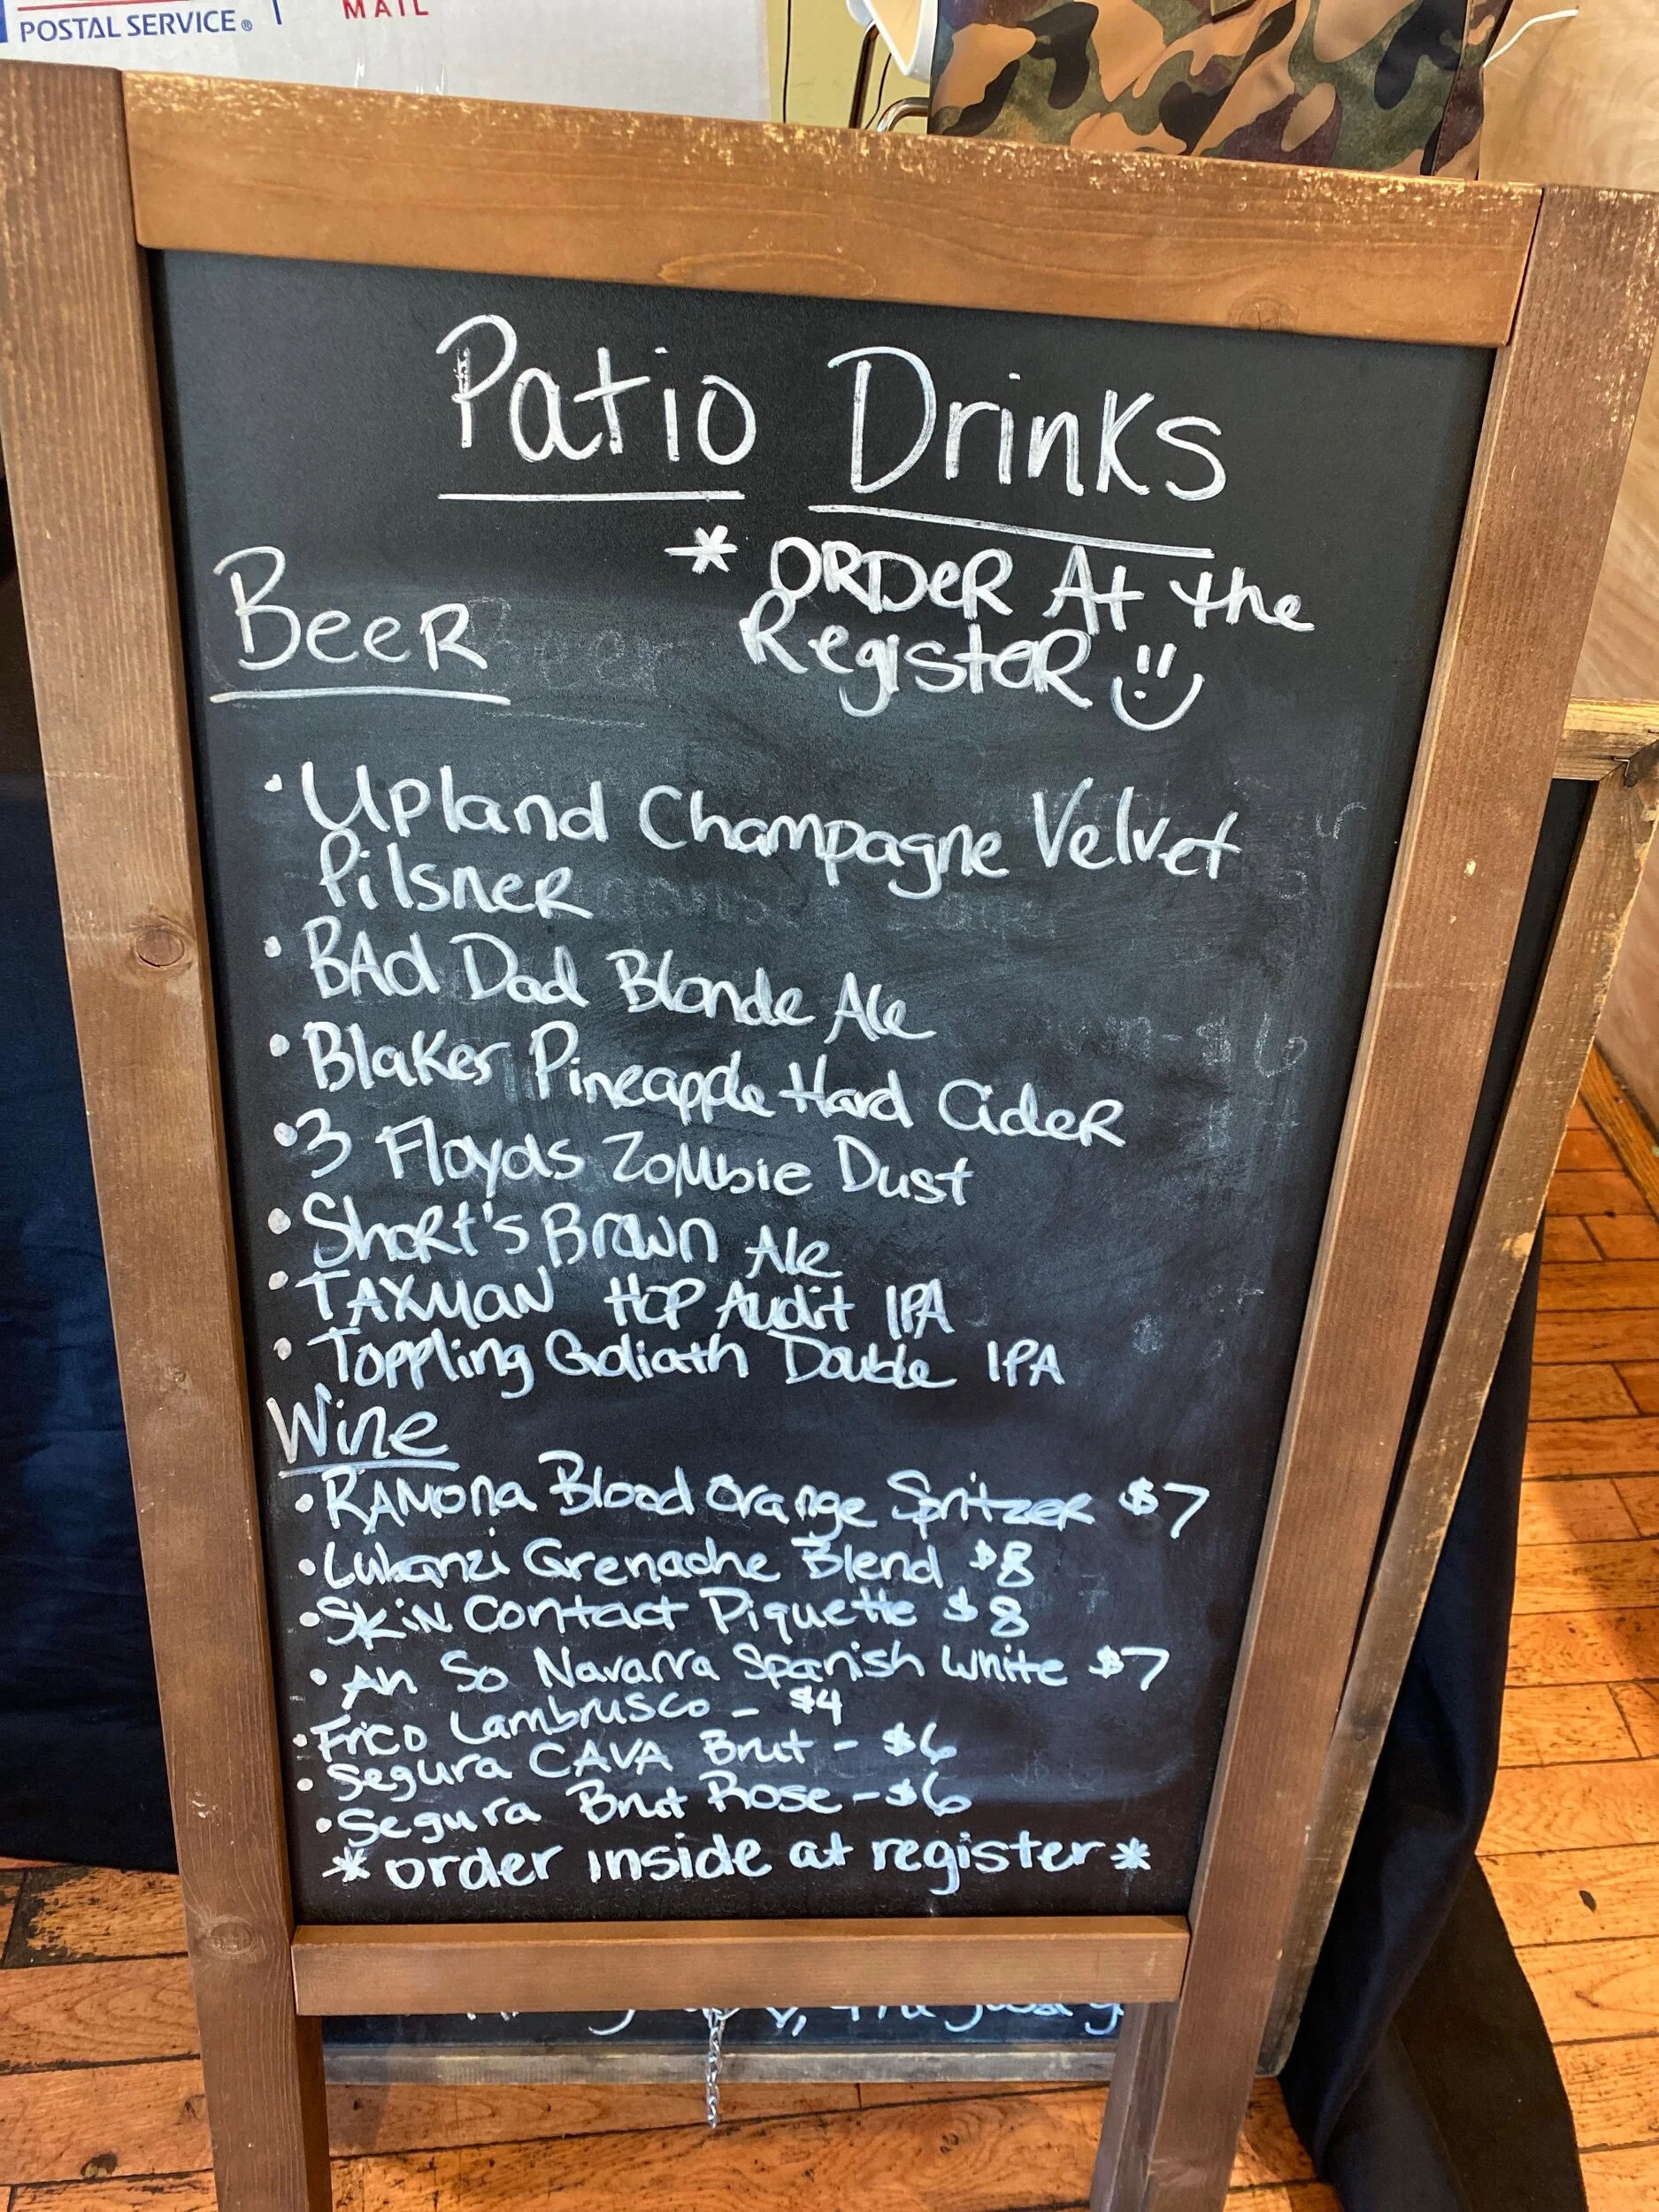 POSTAL SERVICE®
MAIL
Patio Drinks
* ORDER At the
RegisteR
BeeR
• Upland Champagne Velvet
PilsneR
• BAd Dad Blonde Ale
• Blakes Pineapple Hard CideR
• 3 Floyds ZoMbie Dust
• ShoRt's Brown Ale
• TAXMaN HOP Audit IPA
• Toppling Goliath Double IPA
Wine
• RAMona Blood Orange SpritzeR $7
• Lubanzi Grenache Blend $8
• SkiN Contact Piquette $8
• An So Navarra Spanish White $7
• Frico Lambrusco - $4
• Segura CAVA Brut - $6
• Segura Brut Rose - $6
* order inside at register *